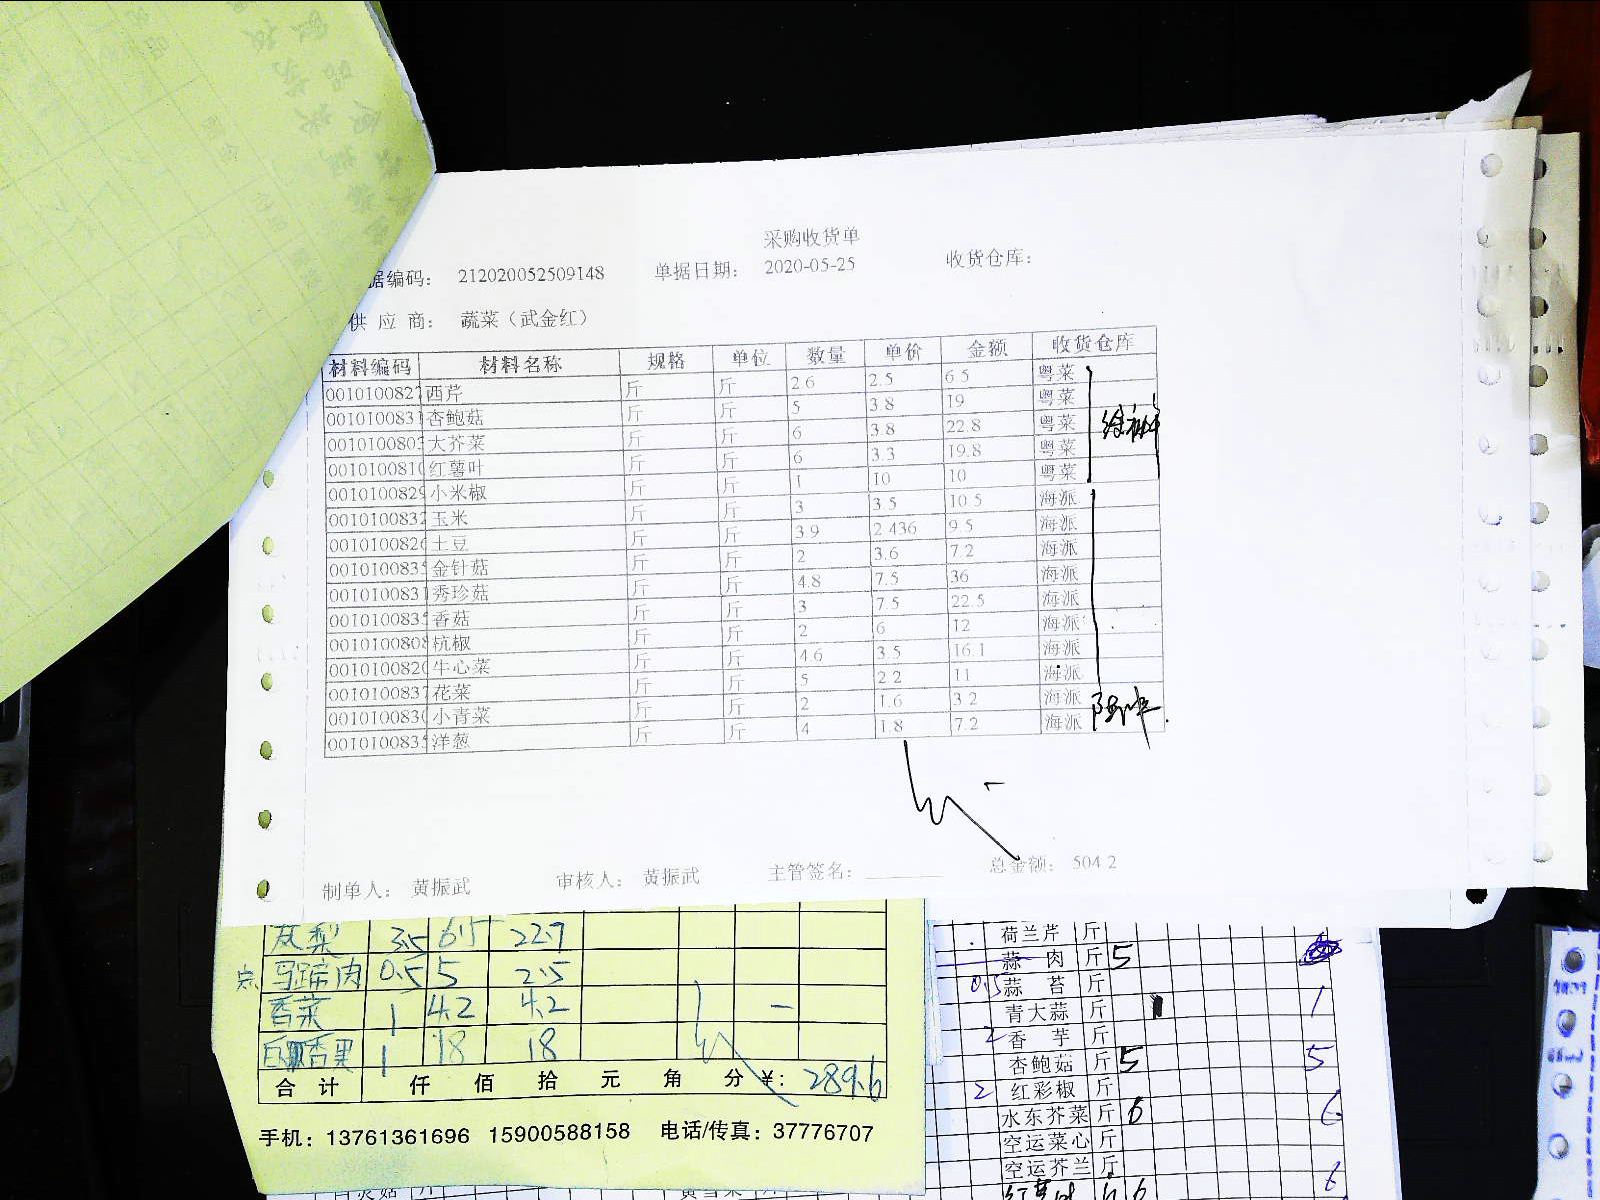 采购收货单
据编码： 212020052509148 单据日期： 2020-05-25 收货仓库：
供 应 商： 蔬菜（武金红）
材料编码 材料名称 规格 单位 数量 单价 金额 收货仓库
0010100827 西芹 斤 斤 26 2.5 65 粤菜
0010100831 杏鲍菇 斤 斤 5 3.8 19 粤菜
001010080 大芥菜 斤 斤 6 3.8 22.8 粤菜
0010100810 红薯叶 斤 斤 6 3.3 19.8 粤菜
0010100829 小米椒 斤 斤 1 10 10 粤菜
0010100832 玉米 斤 斤 3 3.5 10.5 海派
0010100820 土豆 斤 斤 3.9 2.436 9.5 海派
001010083 金针菇 斤 斤 2 3.6 7.2 海派
0010100831 秀珍菇 斤 斤 4.8 7.5 36 海派
001010083 香菇 斤 斤 3 7.5 22.5 海派
0010100808 杭椒 斤 斤 2 6 12 海派
0010100820 牛心菜 斤 斤 4.6 3.5 16.1 海派
0010100837 花菜 斤 斤 5 2.2 11 海派
0010100830 小青菜 斤 斤 2 1.6 3.2 海派
001010083 洋葱 斤 斤 4 1.8 7.2 海派
制单人： 黄振武 审核人： 黄振武 主管签名： 总金额： 504.2
3.5 6.5 22.7
马蹄肉 0.5 5 2.5
香菜 1 4.2 4.2
1 18 18
合 计 仟 佰 拾 元 角 分 ¥： 289.6
手机：13761361696 15900588158 电话/传真：37776707
荷兰芹 斤
蒜 肉 斤 5
0.5 蒜 苔 斤
青大蒜 斤 1
2 香 芋 斤
杏鲍菇 斤 5 5
2 红彩椒 斤
水东芥菜 斤 6 6
空运菜心 斤
空运芥兰 斤